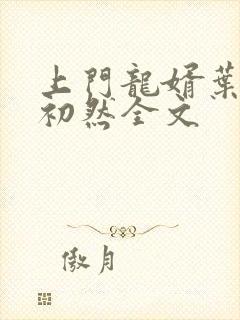 上門龍婿葉
初然全文
傲月